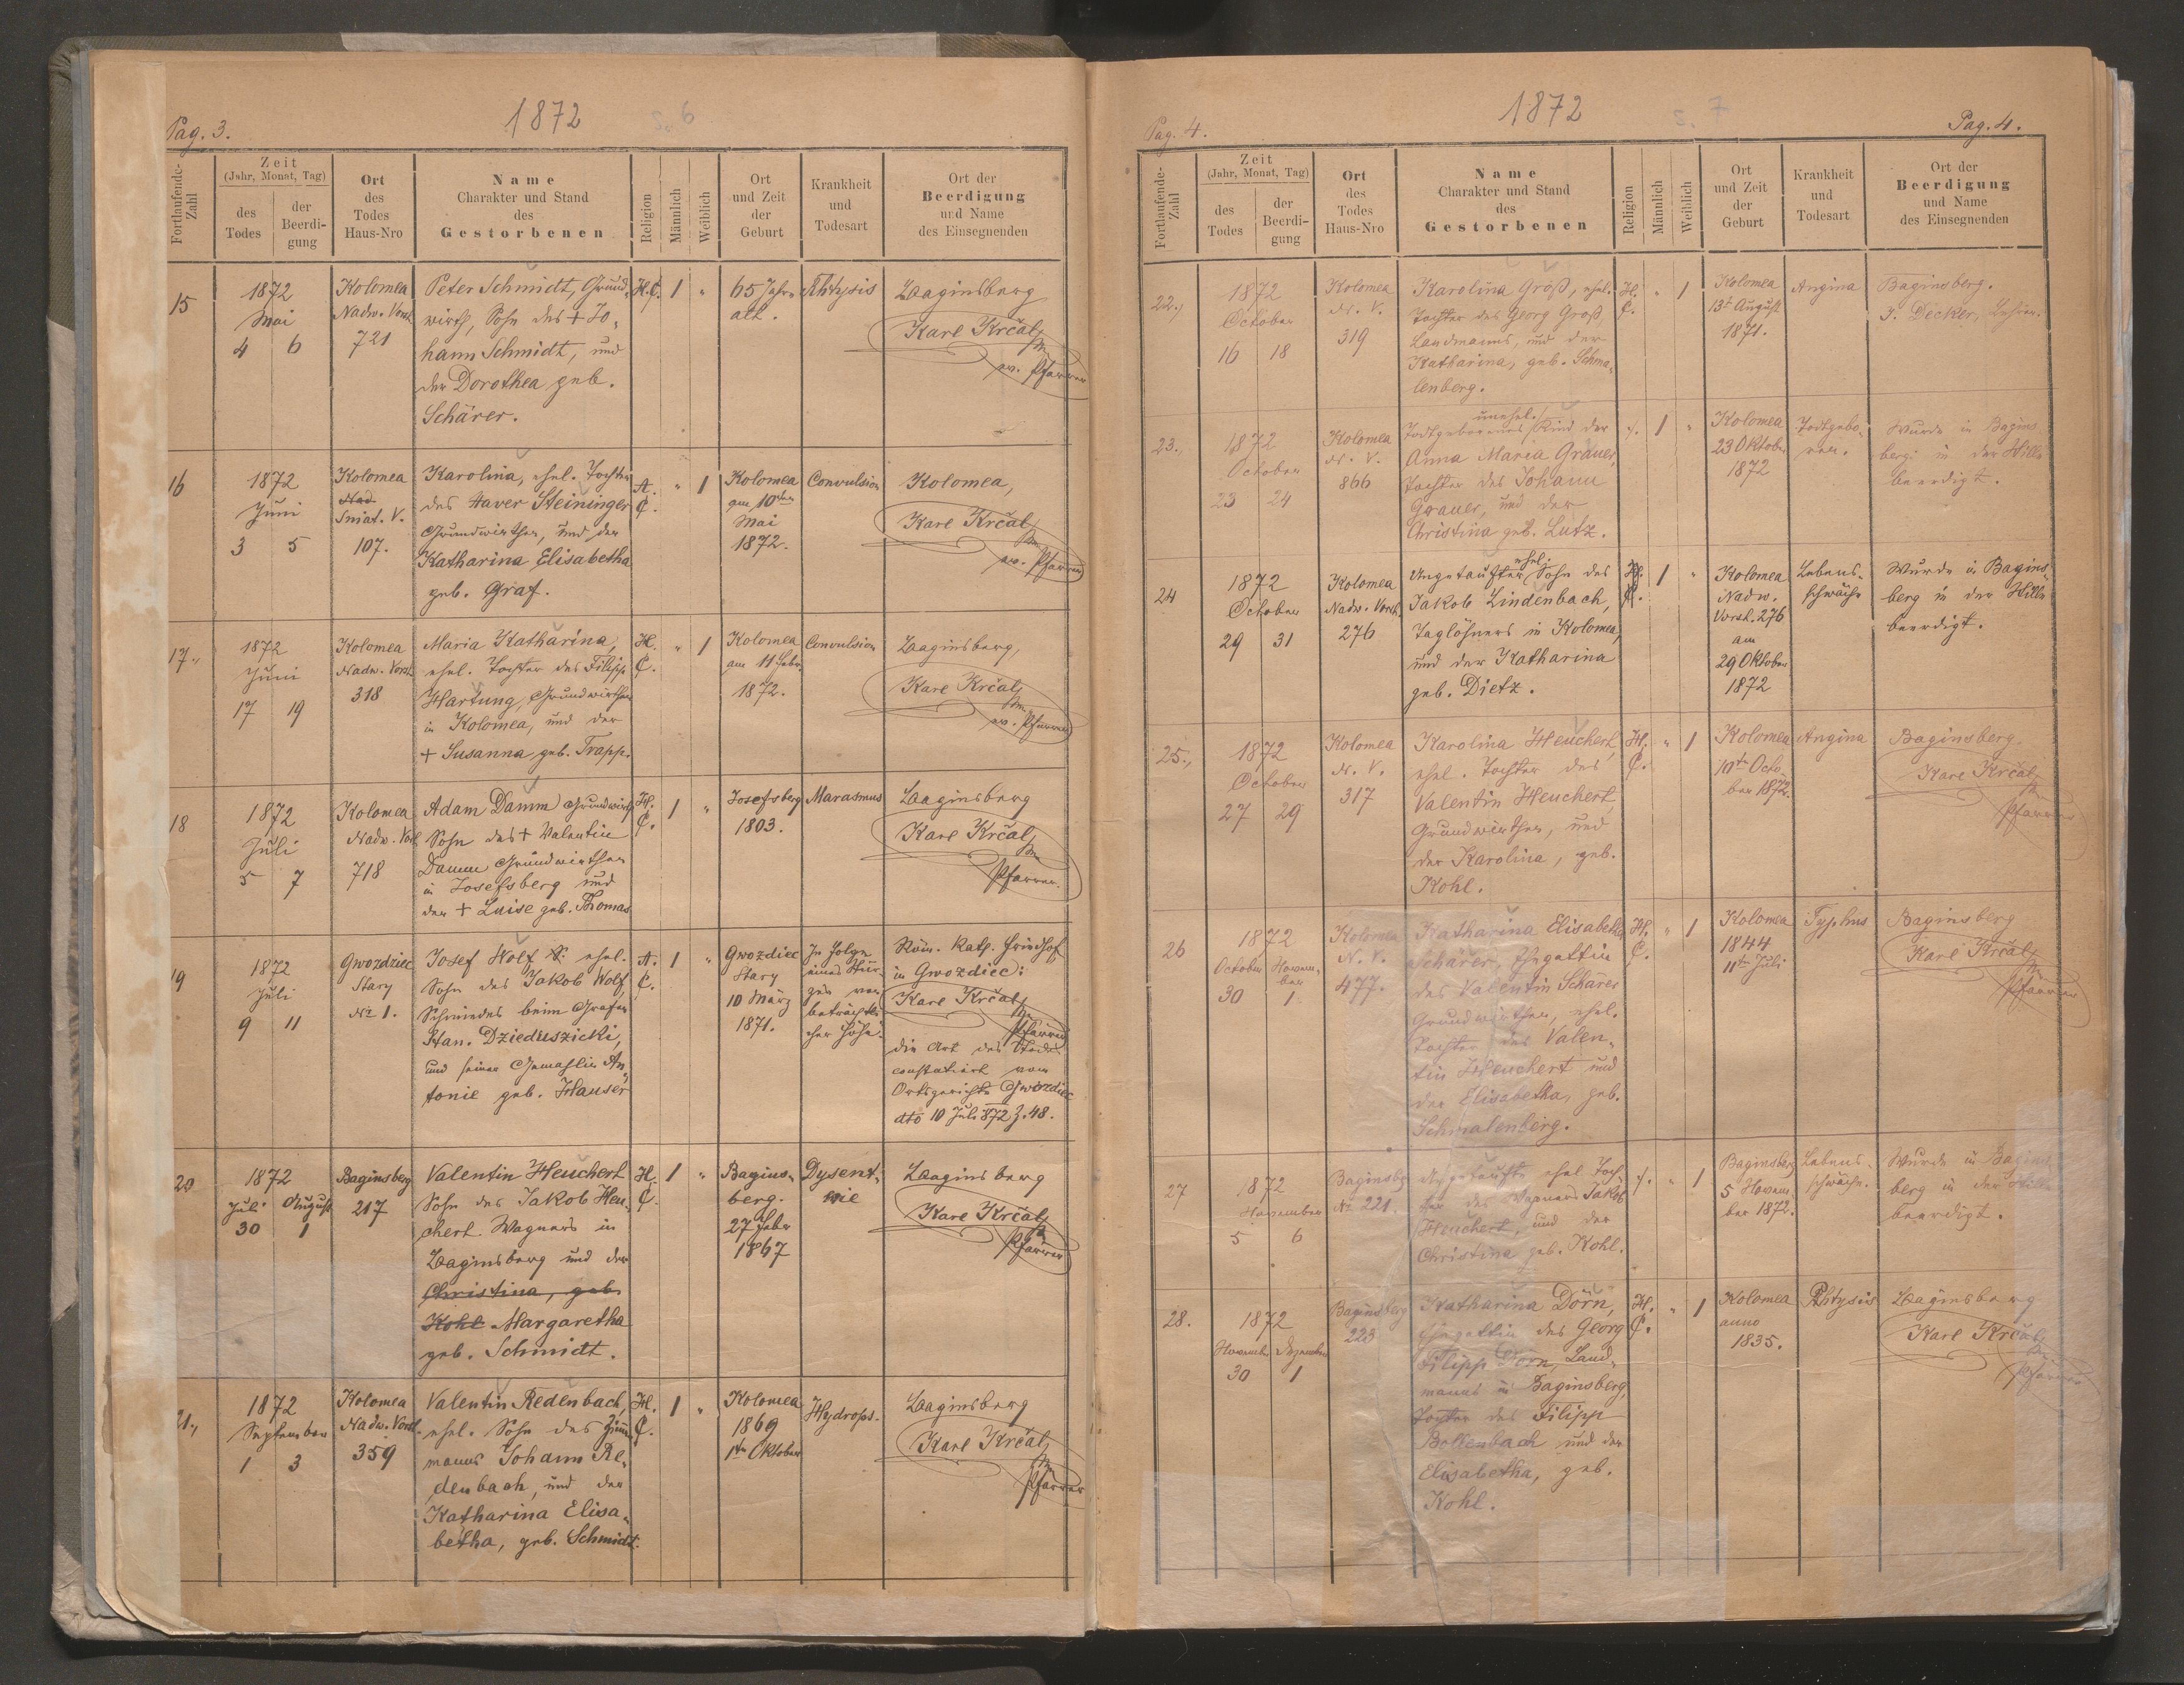 Pag. 3.
1872
S. 6
Fortlaufende-Zahl
Zeit
(Jahr, Monat, Tag)
des Todes
der Beerdi-gung
Ort
des
Todes
Haus-Nro
Name
Charakter und Stand
des
Gestorbenen
Religion
Männlich
Weiblich
Ort
und Zeit
der
Geburt
Krankheit
und
Todesart
Ort der
Beerdigung
und Name
des Einsegnenden
15
1872
Mai
4 6
Kolomea
Nadw. Vorst.
721
Peter Schmidt, Grund-
wirth, Sohn des + Jo-
hann Schmidt, und
der Dorothea geb.
Schärer.
H. C.
1 "
65 Jahre
alt.
Phtysis
Baginsberg
Karl Krčal
ev. Pfarrer
16
1872
Juni
3 5
Kolomea
Nad.
Sniat. V.
107.
Karolina, ehel. Tochter
des Xaver Steininger
Grundwirthen, und der
Katharina Elisabetha
geb. Graf.
A.
C.
" 1
Kolomea
am 10ten
Mai
1872.
Convulsion
Kolomea,
Karl Krčal
ev. Pfarrer
17.,
1872
Juni
17 19
Kolomea
Nadw. Vorst.
318
Maria Katharina,
ehel. Tochter des Filipp
Hartung, Grundwirthen
in Kolomea, und der
+ Susanna geb. Trapp.
H.
C.
" 1
Kolomea
am 11 Febr.
1872.
Convulsion
Baginsberg,
Karl Krčal
ev. Pfarrer
18
1872
Juli
5 7
Kolomea
Nadw. Vorst.
718
Adam Damm Grundwirth
Sohn des + Valentin
Damm Grundwirthen
in Josefsberg und
der + Luise geb. Thomas
H.
C.
1 "
Josefsberg
1803.
Marasmus
Baginsberg
Karl Krčal
Pfarrer.
19
1872
Juli
9 11
Gwozdziec
Stary
No 1.
Josef Wolf ehel.
Sohn des Jakob Wolf,
Schmiedes beim Grafen
Stan. Dzieduszicki,
und seiner Gemahlin An-
tonie geb. Hauser
A.
C.
1 "
Gwozdiec
Stary
10 März
1871.
In Folge
eines Stur-
zes von
beträchtli-
cher Höhe.
Röm. Kath. Friedhof
in Gwozdiec:
Karl Krčal
Pfarrer
die Art des Todes
constatiert vom
Ortsgerichte Gwozdiec
dto 10 Juli 872 Z. 48.
20
1872
Juli August
30 1
Baginsberg
217
Valentin Heuchert
Sohn des Jakob Heu-
chert Wagners in
Baginsberg und der
Christina, geb.
Kohl Margaretha
geb. Schmidt.
H.
C.
1 "
Bagins-
berg.
27 Febr
1867
Dysent-
rie
Baginsberg
Karl Krčal
Pfarrer
21.,
1872
September
1 3
Kolomea
Nadw. Vorst.
359
Valentin Redenbach,
ehel. Sohn des Zimmer-
manns Johann Re-
denbach, und der
Katharina Elisa-
betha, geb. Schmidt.
H.
C.
1 "
Kolomea
1869
1ten Oktober
Hydrops.
Baginsberg
Karl Krčal
Pfarrer
Pag. 4.
1872
S. 7
Pag. 4.
Fortlaufende-Zahl
Zeit
(Jahr, Monat, Tag)
des Todes
der Beerdi-gung
Ort
des
Todes
Haus-Nro
Name
Charakter und Stand
des
Gestorbenen
Religion
Männlich
Weiblich
Ort
und Zeit
der
Geburt
Krankheit
und
Todesart
Ort der
Beerdigung
und Name
des Einsegnenden
22.,
1872
October
16 18
Kolomea
N. V.
319
Karolina Groß, ehel.
Tochter des Georg Groß,
Landmanns, und der
Katharina, geb. Schma-
lenberg.
H.
C.
" 1
Kolomea
13t August
1871.
Angina
Baginsberg.
J. Decker, Lehrer.
23.
1872
October
23 24
Kolomea
N. V.
866
unehel.
Todtgeborenes Kind der
Anna Maria Grauer,
Tochter des Johann
Grauer, und der
Christina geb. Lutz.
1 "
Kolomea
23 Oktober
1872
Todtgebo-
ren.
Wurde in Bagins-
berg in der Stille
beerdigt.
24
1872
October
29 31
Kolomea
Nadw. Vorst.
276
ehel.
Ungetaufter Sohn des
Jakob Lindenbach,
Taglöhners in Kolomea,
und der Katharina
geb. Dietz.
H.
C.
1 "
Kolomea
Nadw.
Vorst. 276
am
29 Oktober
1872
Lebens-
schwäche
Wurde in Bagins-
berg in der Stille
beerdigt.
25.,
1872
October
27 29
Kolomea
N. V.
317
Karolina Heuchert,
ehel. Tochter des
Valentin Heuchert,
Grundwirthen, und
der Karolina, geb.
Kohl.
H.
C.
" 1
Kolomea
10te Octo-
ber 1872.
Angina
Baginsberg.
Karl Krčal
Pfarrer
26
1872
October Novem-
ber
30 1
Kolomea
N. V.
477.
Katharina Elisabetha
Schärer, Ehegattin
des Valentin Schärer
Grundwirthen, ehel.
Tochter des Valen-
tin Heuchert und
der Elisabetha, geb.
Schmalenberg.
H.
C.
" 1
Kolomea
1844
11te Juli
Typhus
Baginsberg
Karl Krčal
Pfarrer
27
1872
November
5 6
Baginsbg
No 221.
Ungetaufte ehel Toch-
ter des Wagners Jakob
Heuchert, und der
Christina geb. Kohl.
" 1
Baginsberg
5 Novem-
ber 1872.
Lebens-
schwäche.
Wurde in Bagins-
berg in der Stille
beerdigt.
28.
1872
November Dezember
30 1
Baginsberg
223
Katharina Dörn,
Ehegattin des Georg
Filipp Dörn, Land-
manns in Baginsberg,
Tochter des Filipp
Bollenbach und der
Elisabetha, geb.
Kohl.
H.
C.
" 1
Kolomea
anno
1835.
Phtysis
Baginsberg
Karl Krčal
Pfarrer